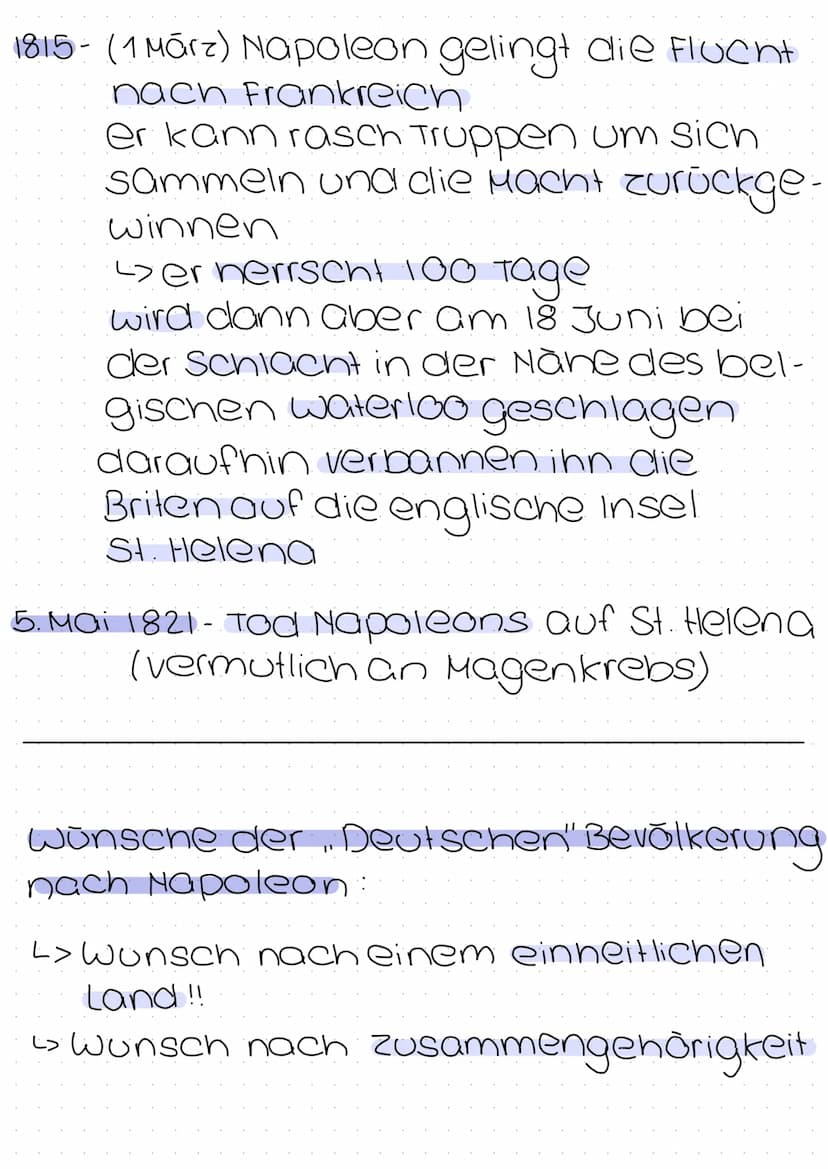 1815 - (1 März) Napoleon gelingt die Flucht
nach Frankreich
er kann rasch Truppen um sich
sammeln und die Macht zurückge-
winnen
↳ er herrscht 100 Tage
wird dann aber am 18 Juni bei
der Schlacht in der Nähe des bel-
gischen Waterloo geschlagen
daraufhin verbannen ihn die
Briten auf die englische Insel
St. Helena
5. Mai 1821 - Tod Napoleons auf St. Helena
(vermutlich an Magenkrebs)
Wünsche der „Deutschen" Bevölkerung
nach Napoleon:
↳ Wunsch nach einem einheitlichen
Land!!
↳ Wunsch nach Zusammengehörigkeit